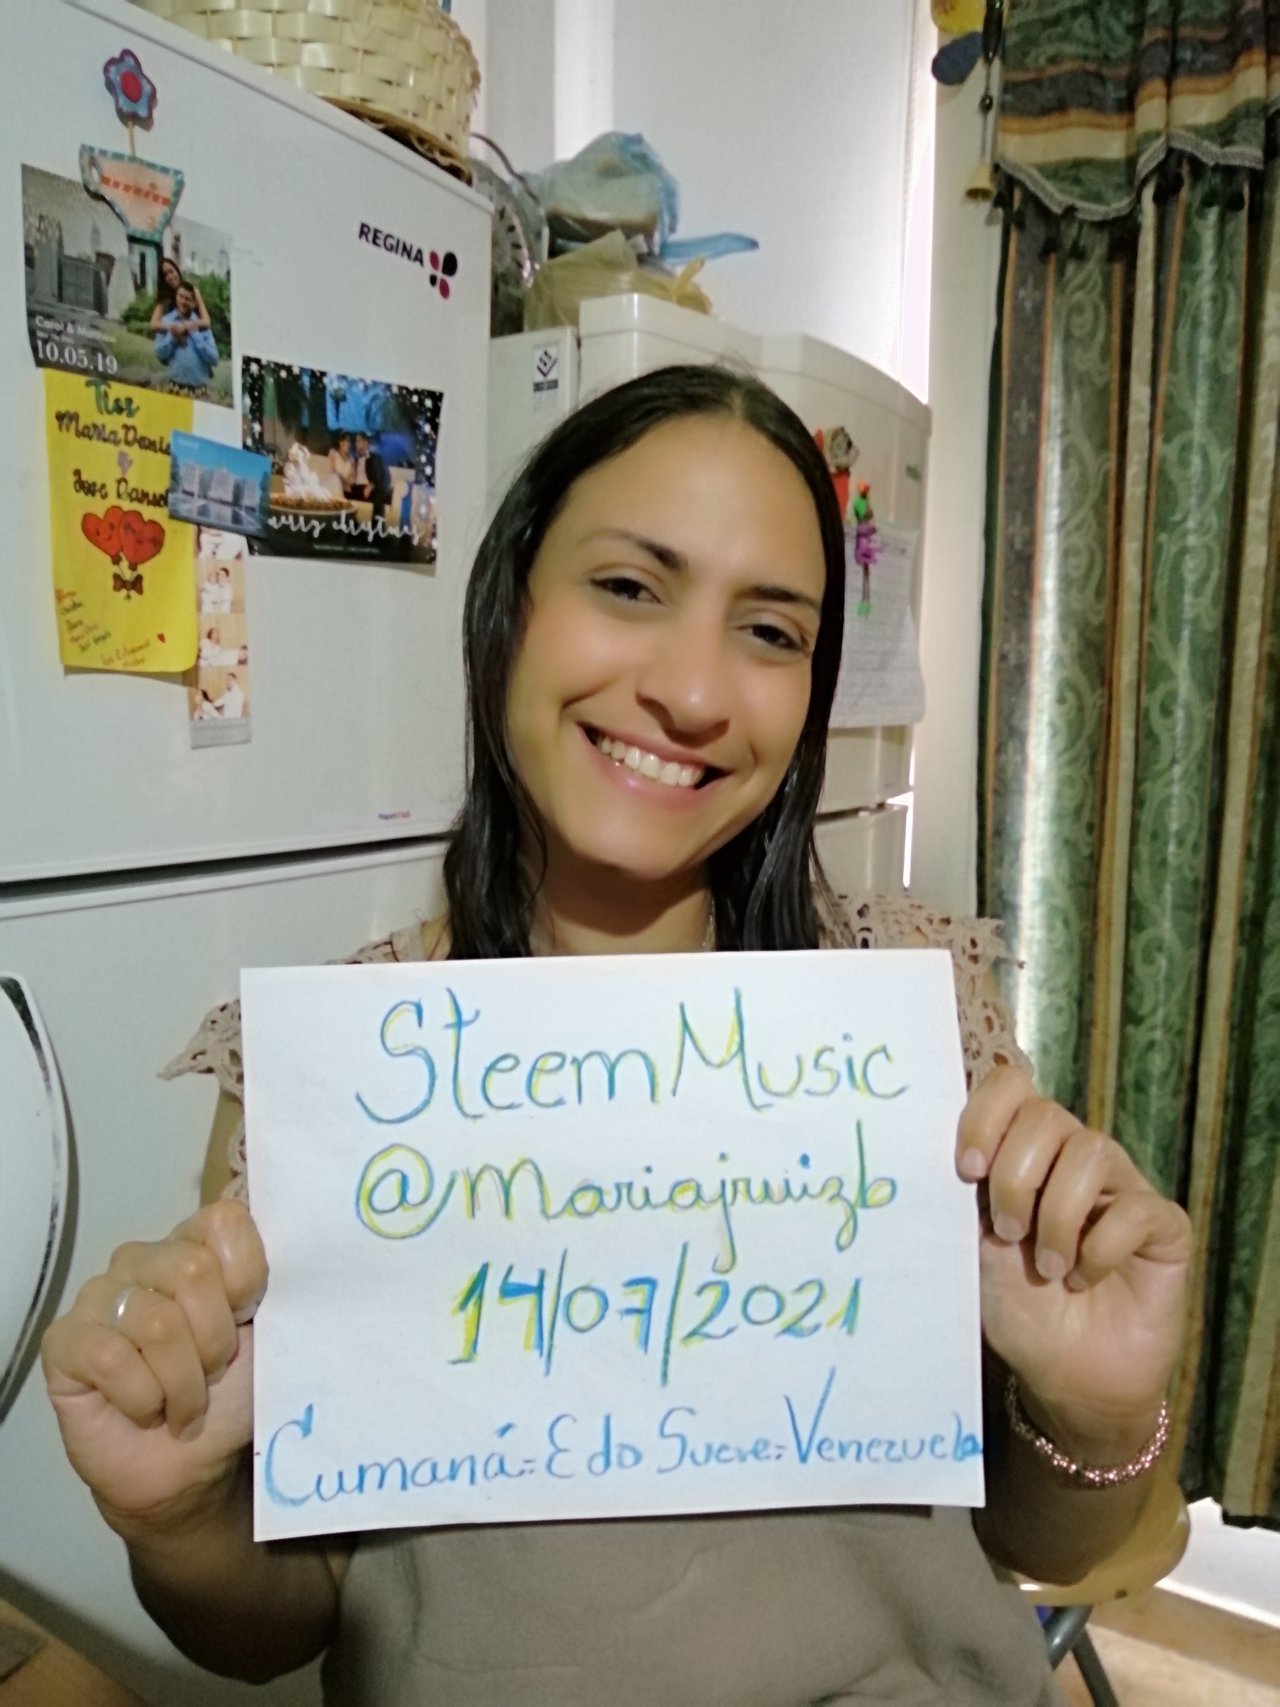 REGINA
Carol &
10.05.19
Tios
Maria Danie
Jose Daniel
merry christmas
Steem Music
@mariajruizb
14/07/2021
Cumaná=Edo Sucre=Venezuela